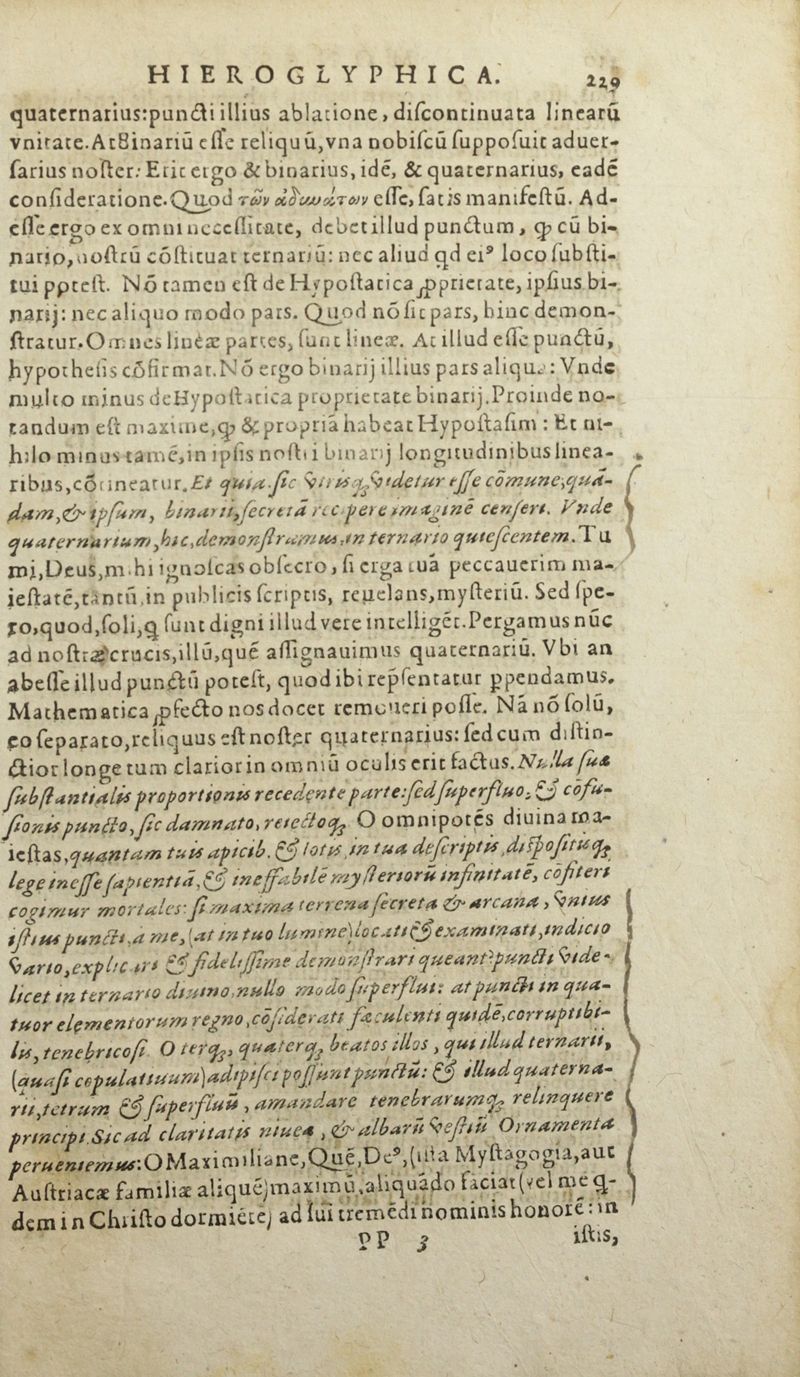 HIEROGLYPHICA. 229
quaternarius:puncti illius ablatione, discontinuata linearū
vnitate. At Binariū esse reliquū, vna nobiscū supposuit aduer-
sarius noster: Erit ergo & binarius, idē, & quaternarius, eadē
consideratione. Quod τῶν ἀδυνάτων esse, satis manifestū. Ad-
esse ergo ex omni necessitate, debet illud punctum, ꝙ cū bi-
nario, nostrū cōstituat ternariū: nec aliud qd eiꝰ loco substi-
tui ppteſt. Nō tamen est de Hypostatica ꝓprietate, ipsius bi-
narij: nec aliquo modo pars. Quod nō sit pars, hinc demon-
stratur. Omnes lineæ partes, sunt lineæ. At illud esse punctū,
hypothesis cōfirmat. Nō ergo binarij illius pars aliqua: Vnde
multo minus de Hypostatica proprietate binarij. Proinde no-
tandum est maxime, ꝙ & propriā habeat Hypostasim: Et ni-
hilo minus tamē, in ipsis nostri binarij longitudinibus linea-
ribus, cōtineatur. Et quia sic vtrisq; videtur esse cōmune, quā-
dam, & ipsum, binarii, secretā recipere imaginē censeri. Vnde
quaternarium, hic, demonstramus, in ternario quiescentem. Tu
mi, Deus, mihi ignoscas obsecro, si erga tuā peccauerim ma-
iestatē, tantū, in publicis scriptis, reuelans, mysteriū. Sed spe-
ro, quod, soli, q̄ sunt digni illud vere intelligēt. Pergamus nūc
ad nostræ crucis, illū, quē assignauimus quaternariū. Vbi an
abesse illud punctū potest, quod ibi rep̄sentatur ppendamus.
Mathematica ꝓfecto nos docet remoueri posse. Nā nō solū,
eo separato, reliquus est noster quaternarius: sed cum distin-
ctior longe tum clarior in omniū oculis erit factus. Nulla sua
substantialis proportionis recedente parte: sed superfluo, & cōfu-
sionis puncto, sic damnato, reiectoq; O omnipotēs diuina ma-
iestas, quantam tuis apicib. & iotis, in tua descriptis, dispositisq;
lege inesse sapientiā, & ineffabilē mysteriorū infinitatē, cōfiteri
cogimur mortales: si maxima terrena secreta & arcana, vnius
istius puncti, a me, (at in tuo lumine) locati & examinati, indicio
vario, explicari & fidelissime demonstrari queant? puncti vide-
licet in ternario diuino, nullo modo superflui: at puncti in qua-
tuor elementorum regno, cōsiderati fæculenti quidē, corruptibi-
lis, tenebricosi. O terq;, quaterq; beatos illos, qui illud ternarii,
(quasi copulatiuum) adipisci possunt punctū: & illud quaterna-
rii, tetrum & superfluū, amandare tenebrarumq; relinquere
principi. Sic ad claritatis niuea, & albarū vestiū Ornamenta
perueniemus: O Maximiliane, Quē, Deꝰ, (ista Mystagogia, aut
Austriacæ familiæ aliquē) maximū, aliquādo faciat (vel me q̄-
dem in Christo dormiēte) ad sui tremēdi nominis honorē: in
PP 3 istis,